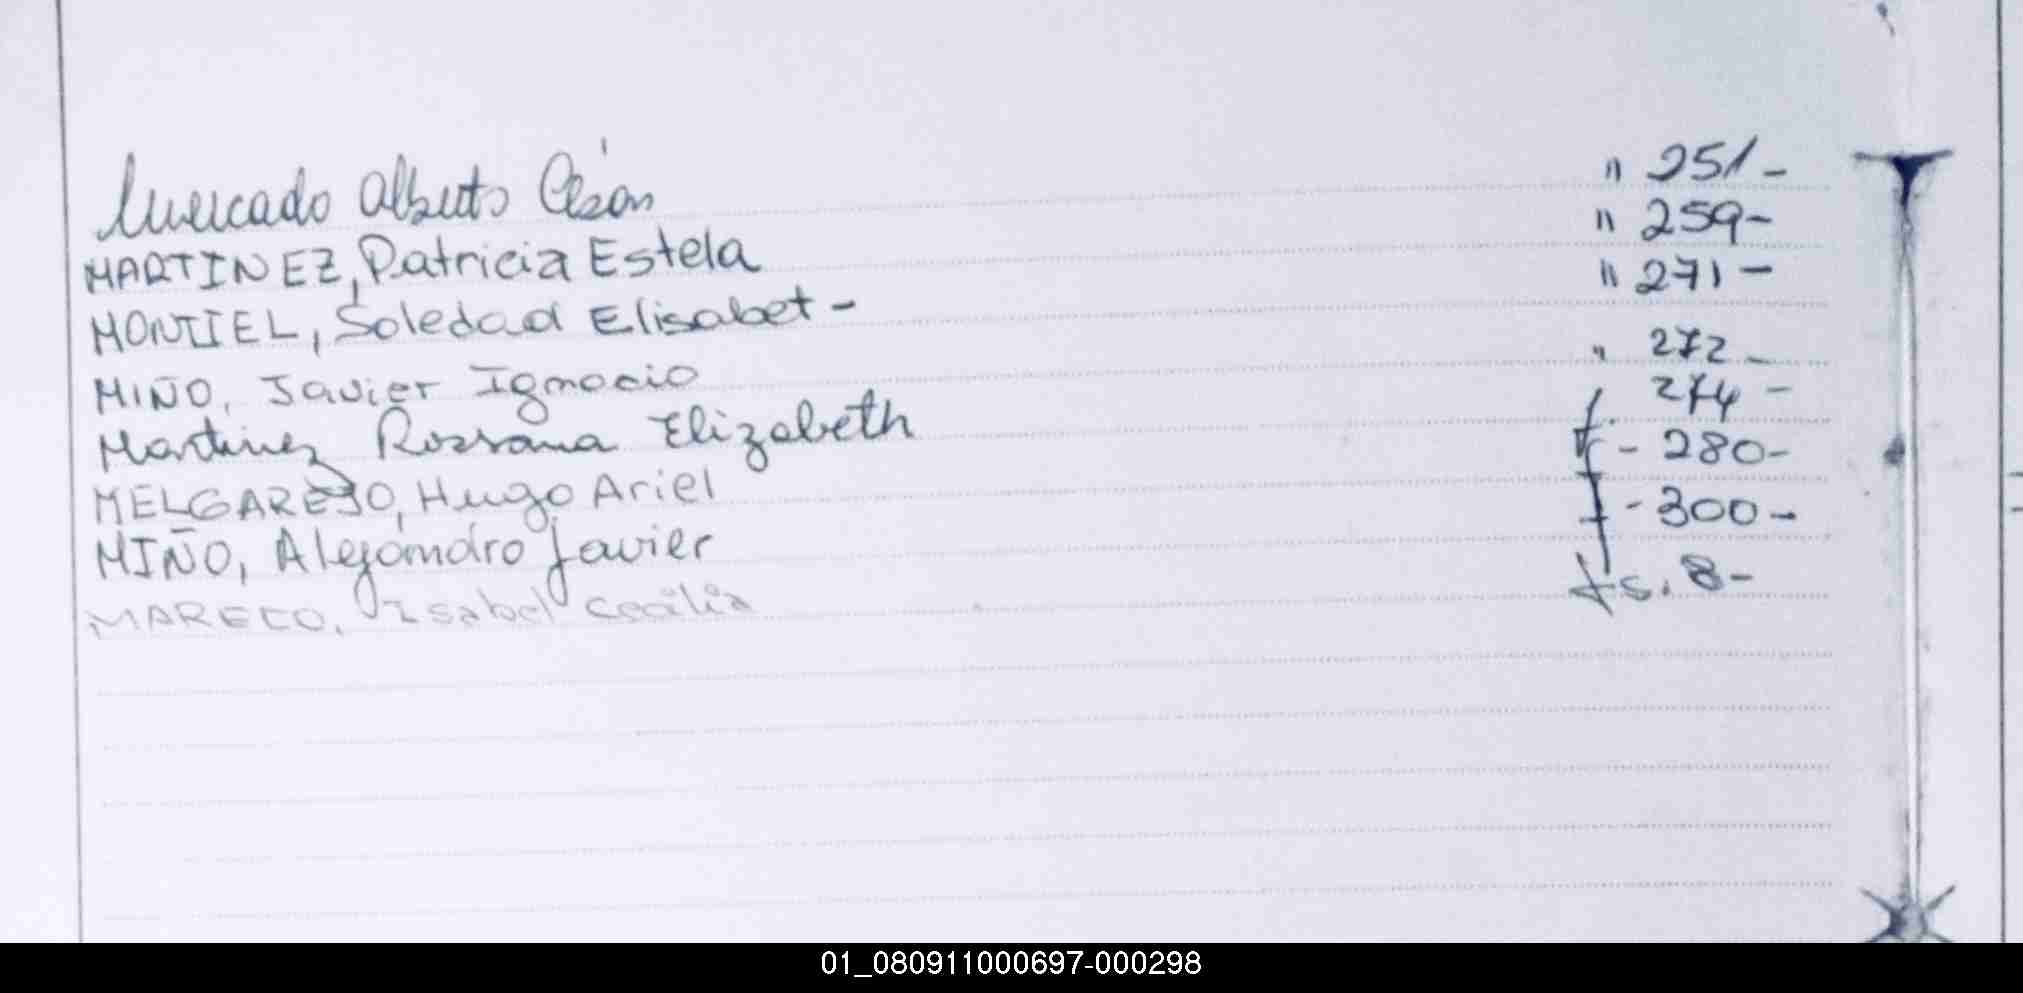 Mercado Alberto César " 251-
MARTINEZ, Patricia Estela " 259-
MONTIEL, Soledad Elisabet - " 271-
MIÑO, Javier Ignacio " 272-
Martinez Rossana Elizabeth f. 274-
MELGAREJO, Hugo Ariel f - 280-
MIÑO, Alejandro Javier f - 300-
MARECO, Isabel Cecilia fs. 8-
01_080911000697-000298